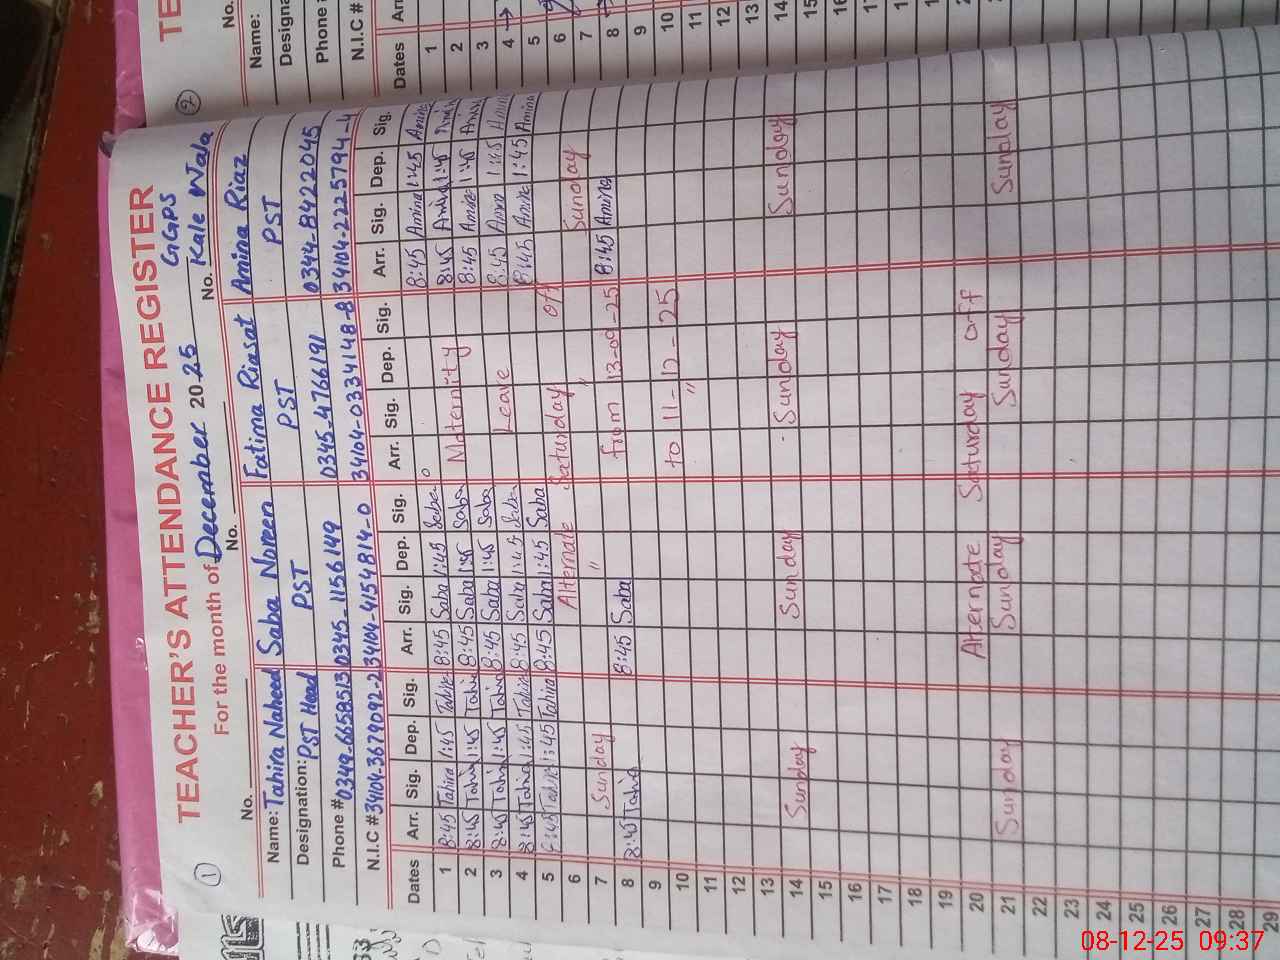 TEACHER'S ATTENDANCE REGISTER
1
For the month of December 2025 GGPS Kale Wala
No. No. No.
Name: Tahira Naheed Saba Noreen Fatima Riasat Amina Riaz
Designation: PST Head PST PST PST
Phone # 0349-6658513 0345-1156149 0345-4766191 0344-8422045
N.I.C # 34104-3679092-2 34104-4154814-0 34104-0334148-8 34104-2225794-4
Dates Arr. Sig. Dep. Sig. Arr. Sig. Dep. Sig. Arr. Sig. Dep. Sig. Arr. Sig. Dep. Sig.
1 8:45 Tahira 1:45 Tahira 8:45 Saba 1:45 Saba 8:45 Amina 1:45 Amina
2 8:45 Tahira 1:45 Tahira 8:45 Saba 1:45 Saba Maternity 8:45 Amina 1:45 Amina
3 8:45 Tahira 1:45 Tahira 8:45 Saba 1:45 Saba 8:45 Amina 1:45 Amina
4 8:45 Tahira 1:45 Tahira 8:45 Saba 1:45 Saba Leave 8:45 Amina 1:45 Amina
5 8:45 Tahira 1:45 Tahira 8:45 Saba 1:45 Saba 8:45 Amina 1:45 Amina
6 Alternate Saturday off
7 Sunday " " Sunday
8 8:45 Tahira 8:45 Saba from 13-09-25 8:45 Amina
9
10 to 11-12-25
11 "
12
13
14 Sunday Sunday Sunday Sunday
15
16
17
18
19
20 Alternate Saturday off
21 Sunday Sunday Sunday Sunday
22
23
24
25
26
27
28
29
2
TE
No.
Name:
Designa
Phone #
N.I.C #
Dates Arr
1
2
3
4
5
6
7
8
9
10
11
12
13
14
15
16
08-12-25 09:37